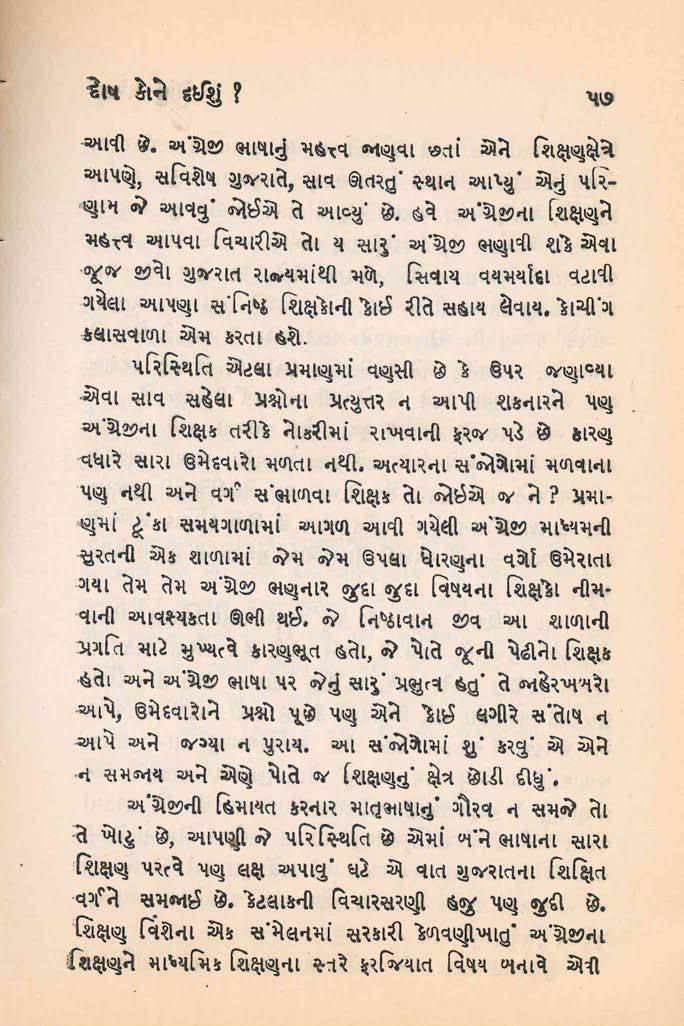 દોષ કોને દઈશું ? ૫૭
આવી છે. અંગ્રેજી ભાષાનું મહત્ત્વ જાણવા છતાં એને શિક્ષણક્ષેત્રે
આપણે, સવિશેષ ગુજરાતે, સાવ ઊતરતું સ્થાન આપ્યું એનું પરિ-
ણામ જે આવવું જોઈએ તે આવ્યું છે. હવે અંગ્રેજીના શિક્ષણને
મહત્ત્વ આપવા વિચારીએ તો ય સારું અંગ્રેજી ભણાવી શકે એવા
જૂજ જીવો ગુજરાત રાજ્યમાંથી મળે, સિવાય વયમર્યાદા વટાવી
ગયેલા આપણા સંનિષ્ઠ શિક્ષકોની કોઈ રીતે સહાય લેવાય. કોચીંગ
કલાસવાળા એમ કરતા હશે.
પરિસ્થિતિ એટલા પ્રમાણમાં વણસી છે કે ઉપર જણાવ્યા
એવા સાવ સહેલા પ્રશ્નોના પ્રત્યુત્તર ન આપી શકનારને પણ
અંગ્રેજીના શિક્ષક તરીકે નોકરીમાં રાખવાની ફરજ પડે છે કારણ
વધારે સારા ઉમેદવારો મળતા નથી. અત્યારના સંજોગોમાં મળવાના
પણ નથી અને વર્ગ સંભાળવા શિક્ષક તો જોઈએ જ ને ? પ્રમા-
ણમાં ટૂંકા સમયગાળામાં આગળ આવી ગયેલી અંગ્રેજી માધ્યમની
સુરતની એક શાળામાં જેમ જેમ ઉપલા ધોરણના વર્ગો ઉમેરાતા
ગયા તેમ તેમ અંગ્રેજી ભણનાર જુદા જુદા વિષયના શિક્ષકો નીમ-
વાની આવશ્યકતા ઊભી થઈ. જે નિષ્ઠાવાન જીવ આ શાળાની
પ્રગતિ માટે મુખ્યત્વે કારણભૂત હતો, જે પોતે જૂની પેઢીનો શિક્ષક
હતો અને અંગ્રેજી ભાષા પર જેનું સારું પ્રભુત્વ હતું તે જાહેરખબરો
આપે, ઉમેદવારોને પ્રશ્નો પૂછે પણ એને કોઈ લગીરે સંતોષ ન
આપે અને જગ્યા ન પુરાય. આ સંજોગોમાં શું કરવું એ એને
ન સમજાય અને એણે પોતે જ શિક્ષણનું ક્ષેત્ર છોડી દીધું.
અંગ્રેજીની હિમાયત કરનાર માતૃભાષાનું ગૌરવ ન સમજે તો
તે ખોટું છે, આપણી જે પરિસ્થિતિ છે એમાં બંને ભાષાના સારા
શિક્ષણ પરત્વે પણ લક્ષ અપાવું ઘટે એ વાત ગુજરાતના શિક્ષિત
વર્ગને સમજાઈ છે. કેટલાકની વિચારસરણી હજુ પણ જુદી છે.
શિક્ષણ વિશેના એક સંમેલનમાં સરકારી કેળવણીખાતું અંગ્રેજીના
શિક્ષણને માધ્યમિક શિક્ષણના સ્તરે ફરજિયાત વિષય બનાવે એવી